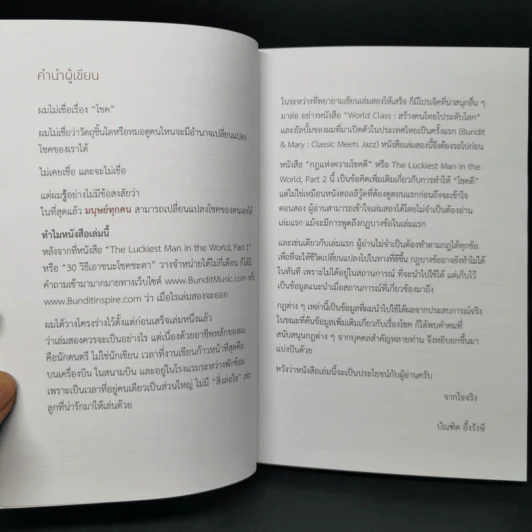 คำนำผู้เขียน
ผมไม่เชื่อเรื่อง "โชค"
ผมไม่เชื่อว่าวัตถุชิ้นใดหรือหมอดูคนไหนจะมีอำนาจเปลี่ยนแปลง
โชคของเราได้
ไม่เคยเชื่อ และจะไม่เชื่อ
แต่ผมรู้อย่างไม่มีข้อสงสัยว่า
ในที่สุดแล้ว มนุษย์ทุกคน สามารถเปลี่ยนแปลงโชคของตนเองได้
ทำไมหนังสือเล่มนี้
หลังจากที่หนังสือ "The Luckiest Man in the World, Part I"
หรือ "30 วิธีเอาชนะโชคชะตา" วางจำหน่ายได้ไม่กี่เดือน ก็ได้มี
คำถามเข้ามามากมายทางเว็บไซต์ www.BunditMusic.com หรือ
www.BunditInspire.com ว่า เมื่อไรเล่มสองจะออก
ผมได้วางโครงร่างไว้ตั้งแต่ก่อนเสร็จเล่มหนึ่งแล้ว
ว่าเล่มสองควรจะเป็นอย่างไร แต่เนื่องด้วยอาชีพหลักของผม
คือนักดนตรี ไม่ใช่นักเขียน เวลาที่งานเขียนก้าวหน้าที่สุดคือ
บนเครื่องบิน ในสนามบิน และอยู่ในโรงแรมระหว่างพักซ้อม
เพราะเป็นเวลาที่อยู่คนเดียวเป็นส่วนใหญ่ ไม่มี "สิ่งล่อใจ" เช่น
ลูกที่น่ารักมาให้เล่นด้วย
ในระหว่างที่พยายามเขียนเล่มสองให้เสร็จ ก็มีโปรเจ็คที่น่าสนุกอื่น ๆ
มาล่อ อย่างหนังสือ "World Class : สร้างคนไทยไประดับโลก"
และอัลบั้มของผมที่มาเปิดตัวในประเทศไทยเป็นครั้งแรก (Bundit
& Mary : Classic Meets Jazz) หนังสือเล่มสองนี้จึงต้องรอไปก่อน
หนังสือ "กฎแห่งความโชคดี" หรือ The Luckiest Man in the
World, Part 2 นี้ เป็นข้อคิดเพิ่มเติมเกี่ยวกับการทำให้ "โชคดี"
แต่ไม่ใช่เหมือนหนังฮอลลีวู้ดที่ต้องดูตอนแรกก่อนถึงจะเข้าใจ
ตอนสอง ผู้อ่านสามารถเข้าใจเล่มสองได้โดยไม่จำเป็นต้องอ่าน
เล่มแรก แม้จะมีการพูดถึงกฎบางข้อในเล่มแรก
และเช่นเดียวกับเล่มแรก ผู้อ่านไม่จำเป็นต้องทำตามกฎได้ทุกข้อ
เพื่อที่จะให้ชีวิตเปลี่ยนแปลงไปในทางที่ดีขึ้น กฎบางข้ออาจยังทำไม่ได้
ในทันที เพราะไม่ได้อยู่ในสถานการณ์ ที่จะนำไปใช้ได้ แต่เก็บไว้
เป็นข้อมูลแนะนำเมื่อสถานการณ์ที่เกี่ยวข้องมาถึง
กฎต่าง ๆ เหล่านี้เป็นข้อมูลที่ผมนำไปใช้ได้ผลจากประสบการณ์จริง
ในขณะที่ค้นข้อมูลเพิ่มเติมเกี่ยวกับเรื่องโชค ก็ได้พบคำคมที่
สนับสนุนกฎต่าง ๆ จากบุคคลสำคัญหลายท่าน จึงหยิบยกขึ้นมา
แบ่งปันด้วย
หวังว่าหนังสือเล่มนี้จะเป็นประโยชน์กับผู้อ่านครับ
จากใจจริง
บัณฑิต อึ้งรังษี